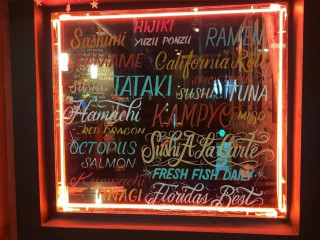 HIJIKI
Sashimi YUZU PONZU RAMEN
EDAMAME California Roll
Sushi TATAKI SUSHI TUNA
Hamachi KAMPYO MISO
RED DRAGON
OCTOPUS Sushi A La Carte
SALMON
FRESH FISH DAILY
Kumachi
UNAGI Floridas Best